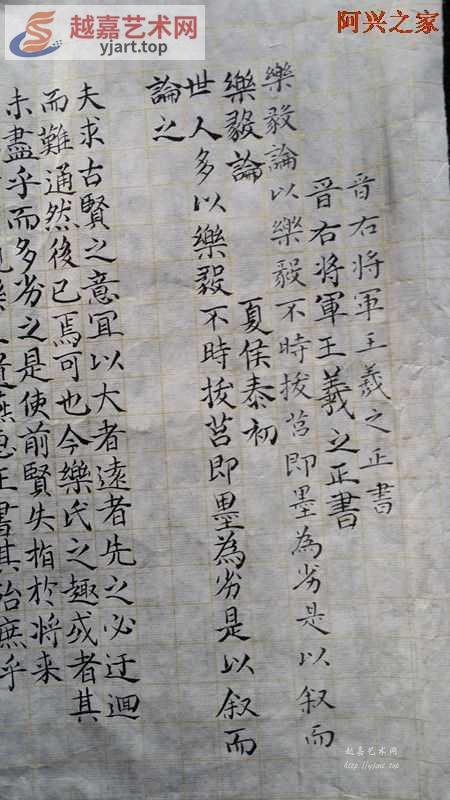 越嘉艺术网
yjart.top
阿兴之家
晋右将軍王羲之正書
晋右将軍王羲之正書
樂毅論以樂毅不時拔莒即墨為劣是以叙而
樂毅論 夏侯泰初
世人多以樂毅不時拔莒即墨為劣是以叙而
論之
夫求古賢之意宜以大者遠者先之必迂迴
而難通然後已焉可也今樂氏之趣或者其
未盡乎而多劣之是使前賢失指於将来
燕惠王書其殆庶乎
越嘉艺术网
http://yjart.top